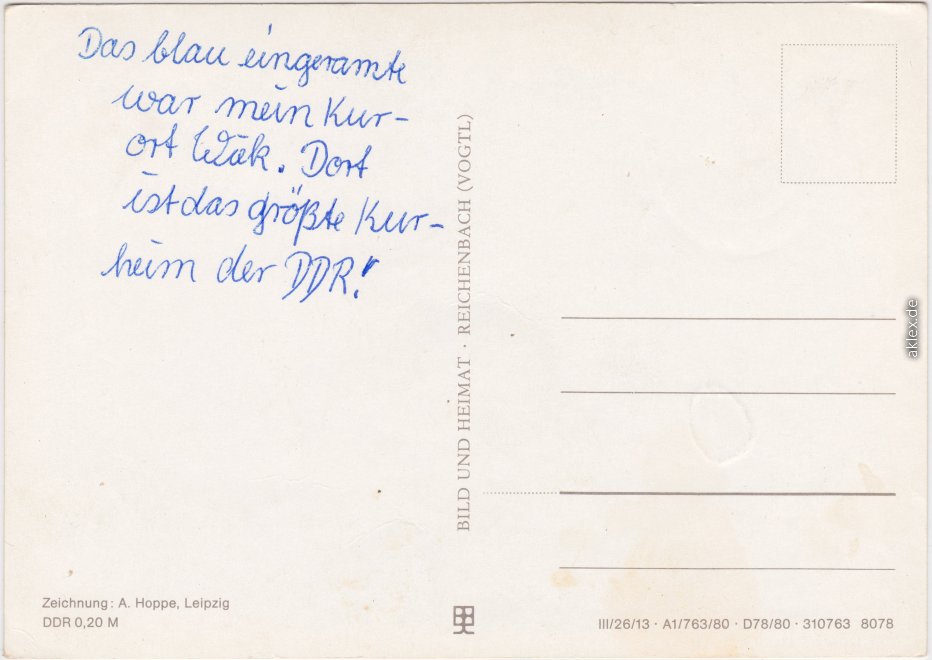 Das blau eingeramte
war mein Kur-
ort Wiek. Dort
ist das größte Kur-
heim der DDR!
BILD UND HEIMAT · REICHENBACH (VOGTL)
Zeichnung: A. Hoppe, Leipzig
DDR 0,20 M
III/26/13 · A1/763/80 · D78/80 · 310763 8078
aklex.de